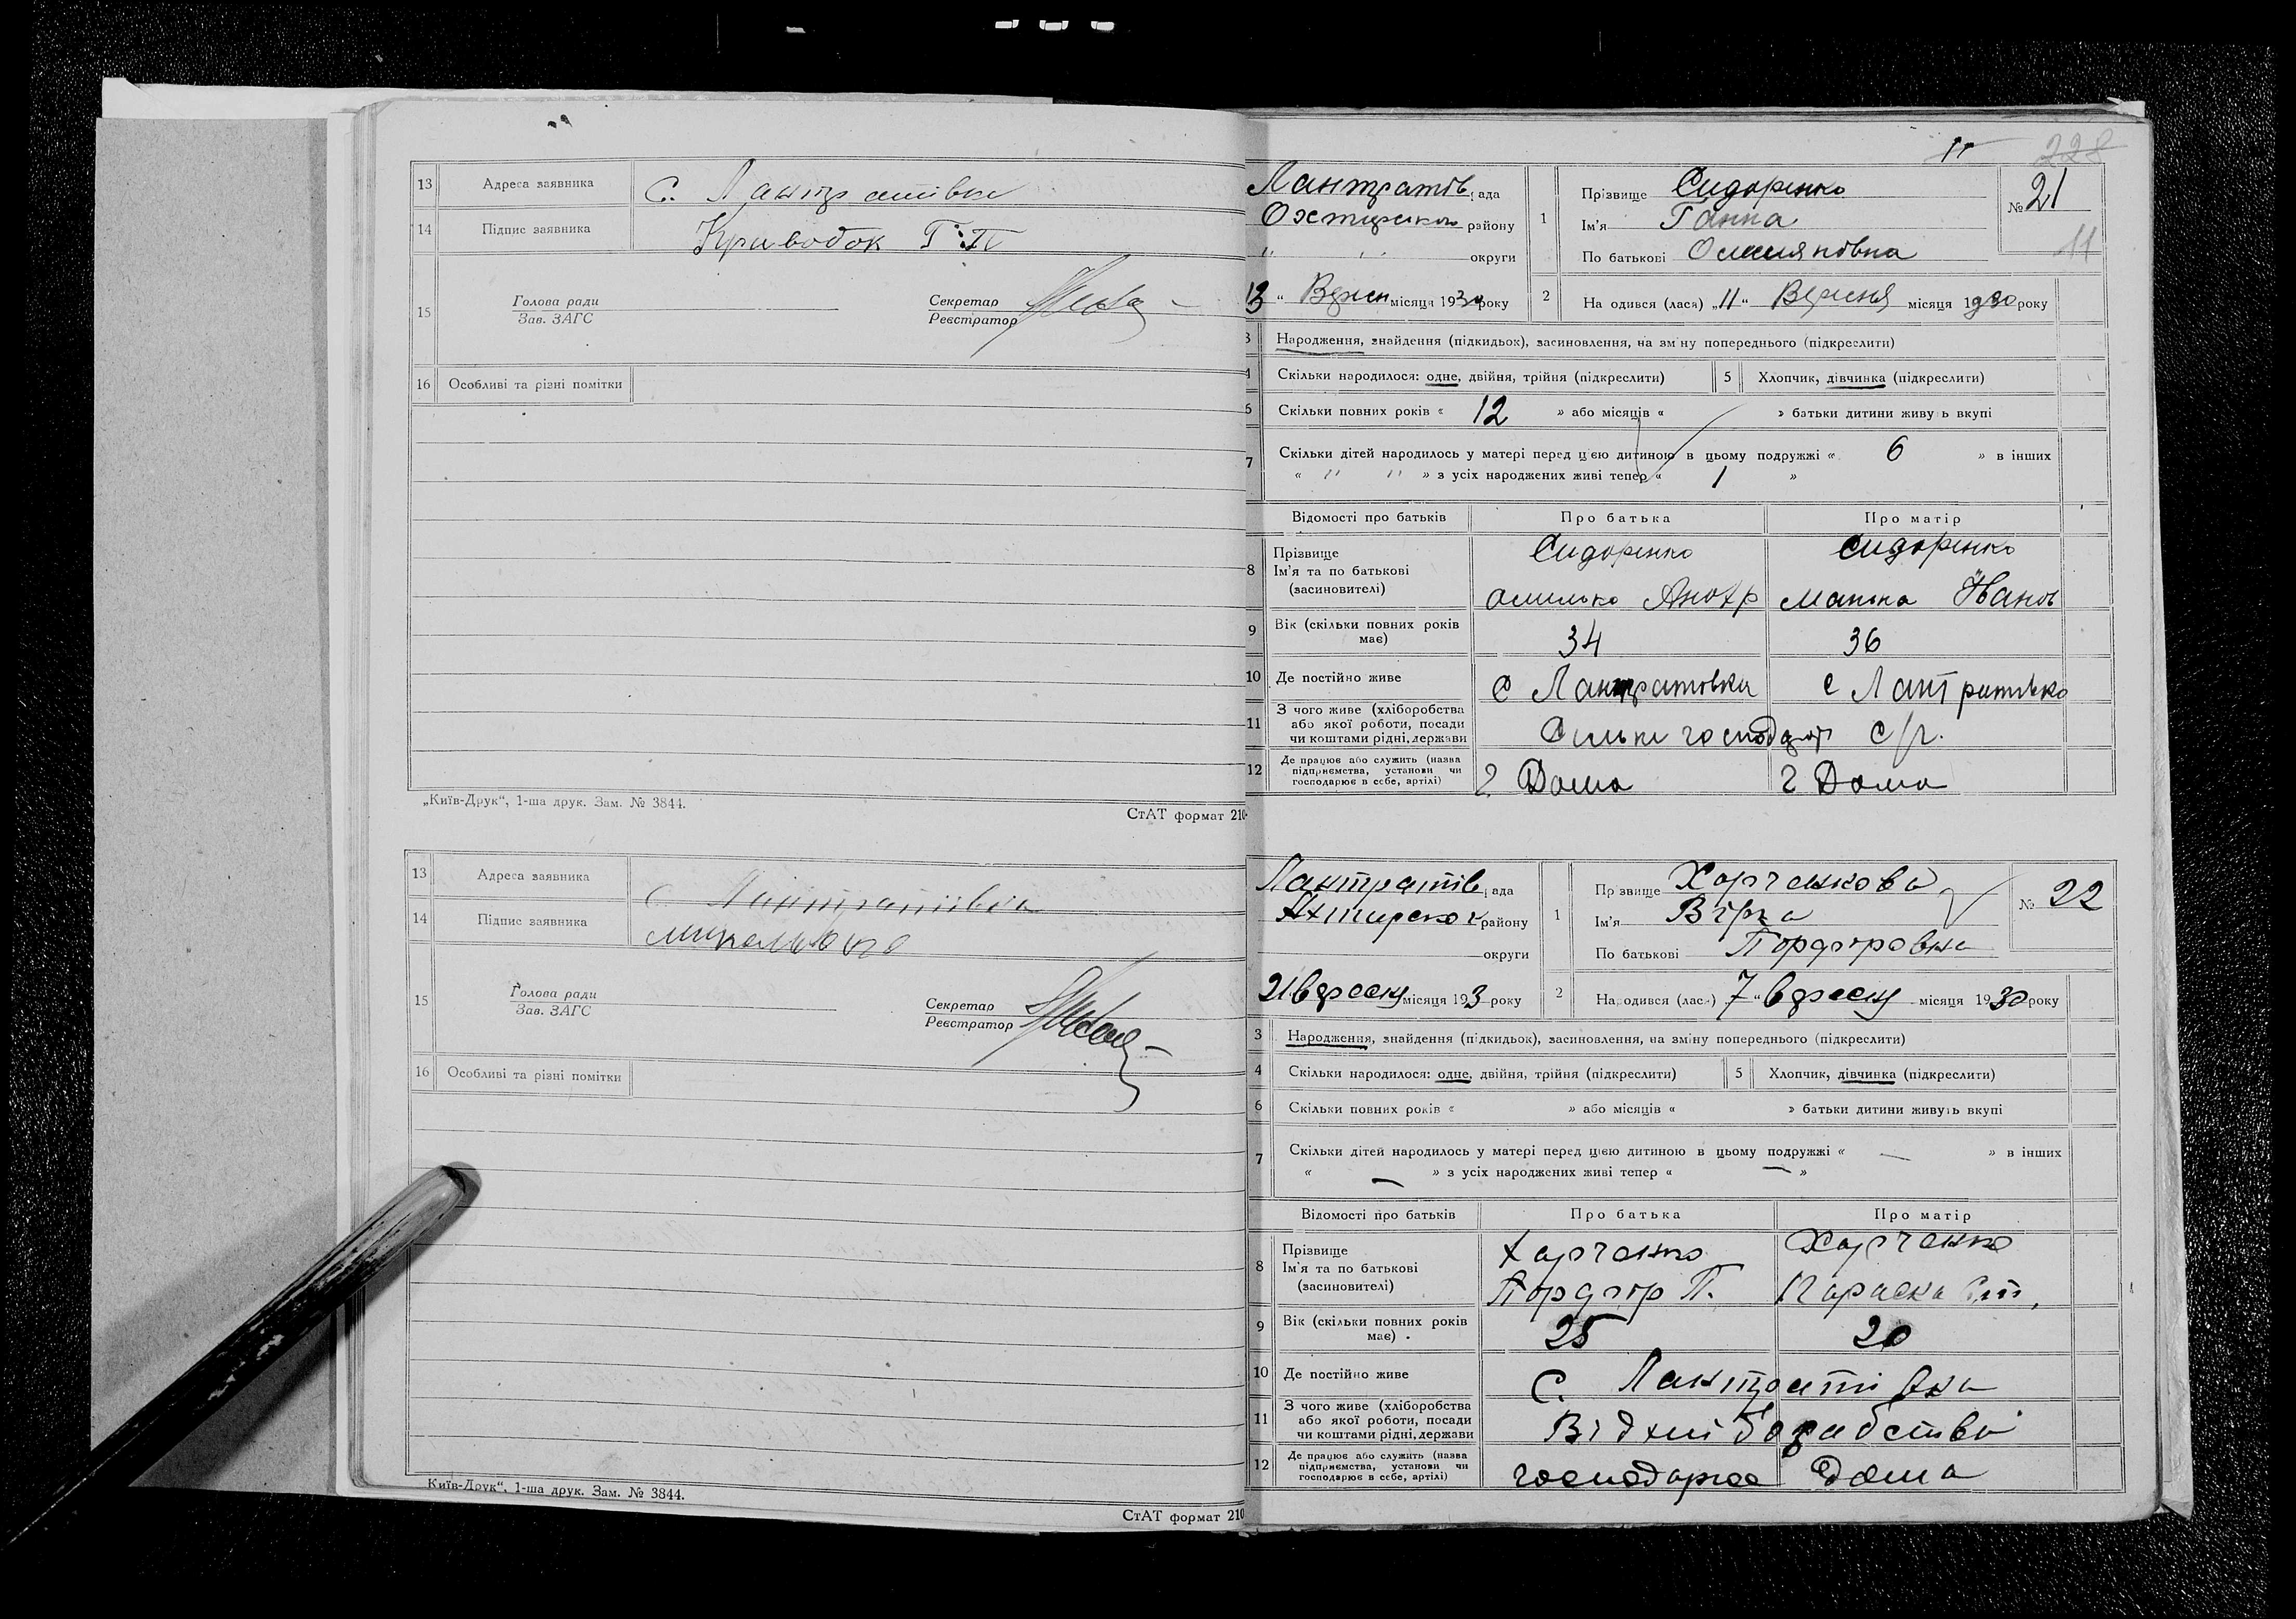 13 Адреса заявника С. Лантратівка
14 Підпис заявника Криводок Г. П
15 Голова ради
Зав. ЗАГС
Секретар
Реєстратор
16 Особливі та різні помітки
„Київ-Друк“, 1-ша друк. Зам. № 3844.
СтАТ формат 210
13 Адреса заявника С. Лантратівка
14 Підпис заявника
15 Голова ради
Зав. ЗАГС
Секретар
Реєстратор
16 Особливі та різні помітки
Київ-Друк“, 1-ша друк. Зам. № 3844.
СтАТ формат 210
11 228
Лантратів ада
Охтирском району
округи
13 “ Верес місяця 1930 року
1 Прізвище Сидоренко
Ім'я Ганна
По батькові Омеляновна
№ 21
11
2 На одився (лася) „11“ Вересня місяця 1930 року
3 Народження, знайдення (підкидьок), засиновлення, на зміну попереднього (підкреслити)
4 Скільки народилося: одне, двійня, трійня (підкреслити) 5 Хлопчик, дівчинка (підкреслити)
6 Скільки повних років « 12 » або місяців « » батьки дитини живуть вкупі
7 Скільки дітей народилось у матері перед цією дитиною в цьому подружжі « 6 » в інших
« " " » з усіх народжених живі тепер « 1 »
Відомості про батьків Про батька Про матір
8 Прізвище
Ім'я та по батькові
(засиновителі)
Сидоренко Сидоренко
Омелько Анохр Мапона Иванов
9 Вік (скільки повних років має) 34 36
10 Де постійно живе с Лантратовка с Лантратовко
11 З чого живе (хліборобства
або якої роботи, посади
чи коштами рідні, держави
Сильки господар с/г.
12 Де працює або служить (назва
підприємства, установи чи
господарює в себе, артілі)
2 Дома 2 Дома
Лантратів ада
Ахтирског району
округи
21 вересну місяця 193 року
1 Прізвище Харченкова
Ім'я Віра
По батькові
№ 22
2 Народився (лась) 7 “ вересну місяця 1930 року
3 Народження, знайдення (підкидьок), засиновлення, на зміну попереднього (підкреслити)
4 Скільки народилося: одне, двійня, трійня (підкреслити) 5 Хлопчик, дівчинка (підкреслити)
6 Скільки повних років « » або місяців « » батьки дитини живуть вкупі
7 Скільки дітей народилось у матері перед цією дитиною в цьому подружжі « — » в інших
« — » з усіх народжених живі тепер « — »
Відомості про батьків Про батька Про матір
8 Прізвище
Ім'я та по батькові
(засиновителі)
Харченко Харченко
П. Параска Ст.
9 Вік (скільки повних років має) 25 20
10 Де постійно живе С. Лантратівка
11 З чого живе (хліборобства
або якої роботи, посади
чи коштами рідні, держави
Від хліборабства
12 Де працює або служить (назва
підприємства, установи чи
господарює в себе, артілі)
господарює дома